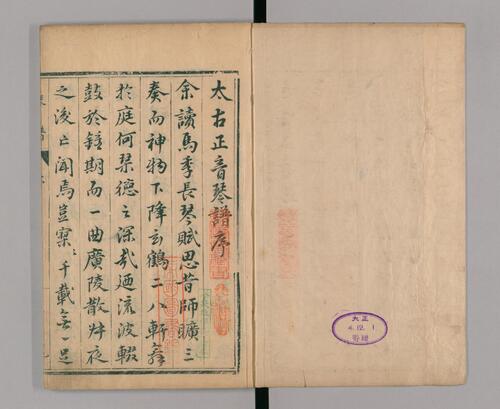 太古正音琴譜序
余讀馬季長琴賦思昔師曠三
奏而神物下降玄鶴二八軒舞
於庭何琴德之深哉迺流波輟
鼓於鍾期而一曲廣陵散叔夜
之後亡聞焉豈寥〻千載無一足
大正
4.12.1